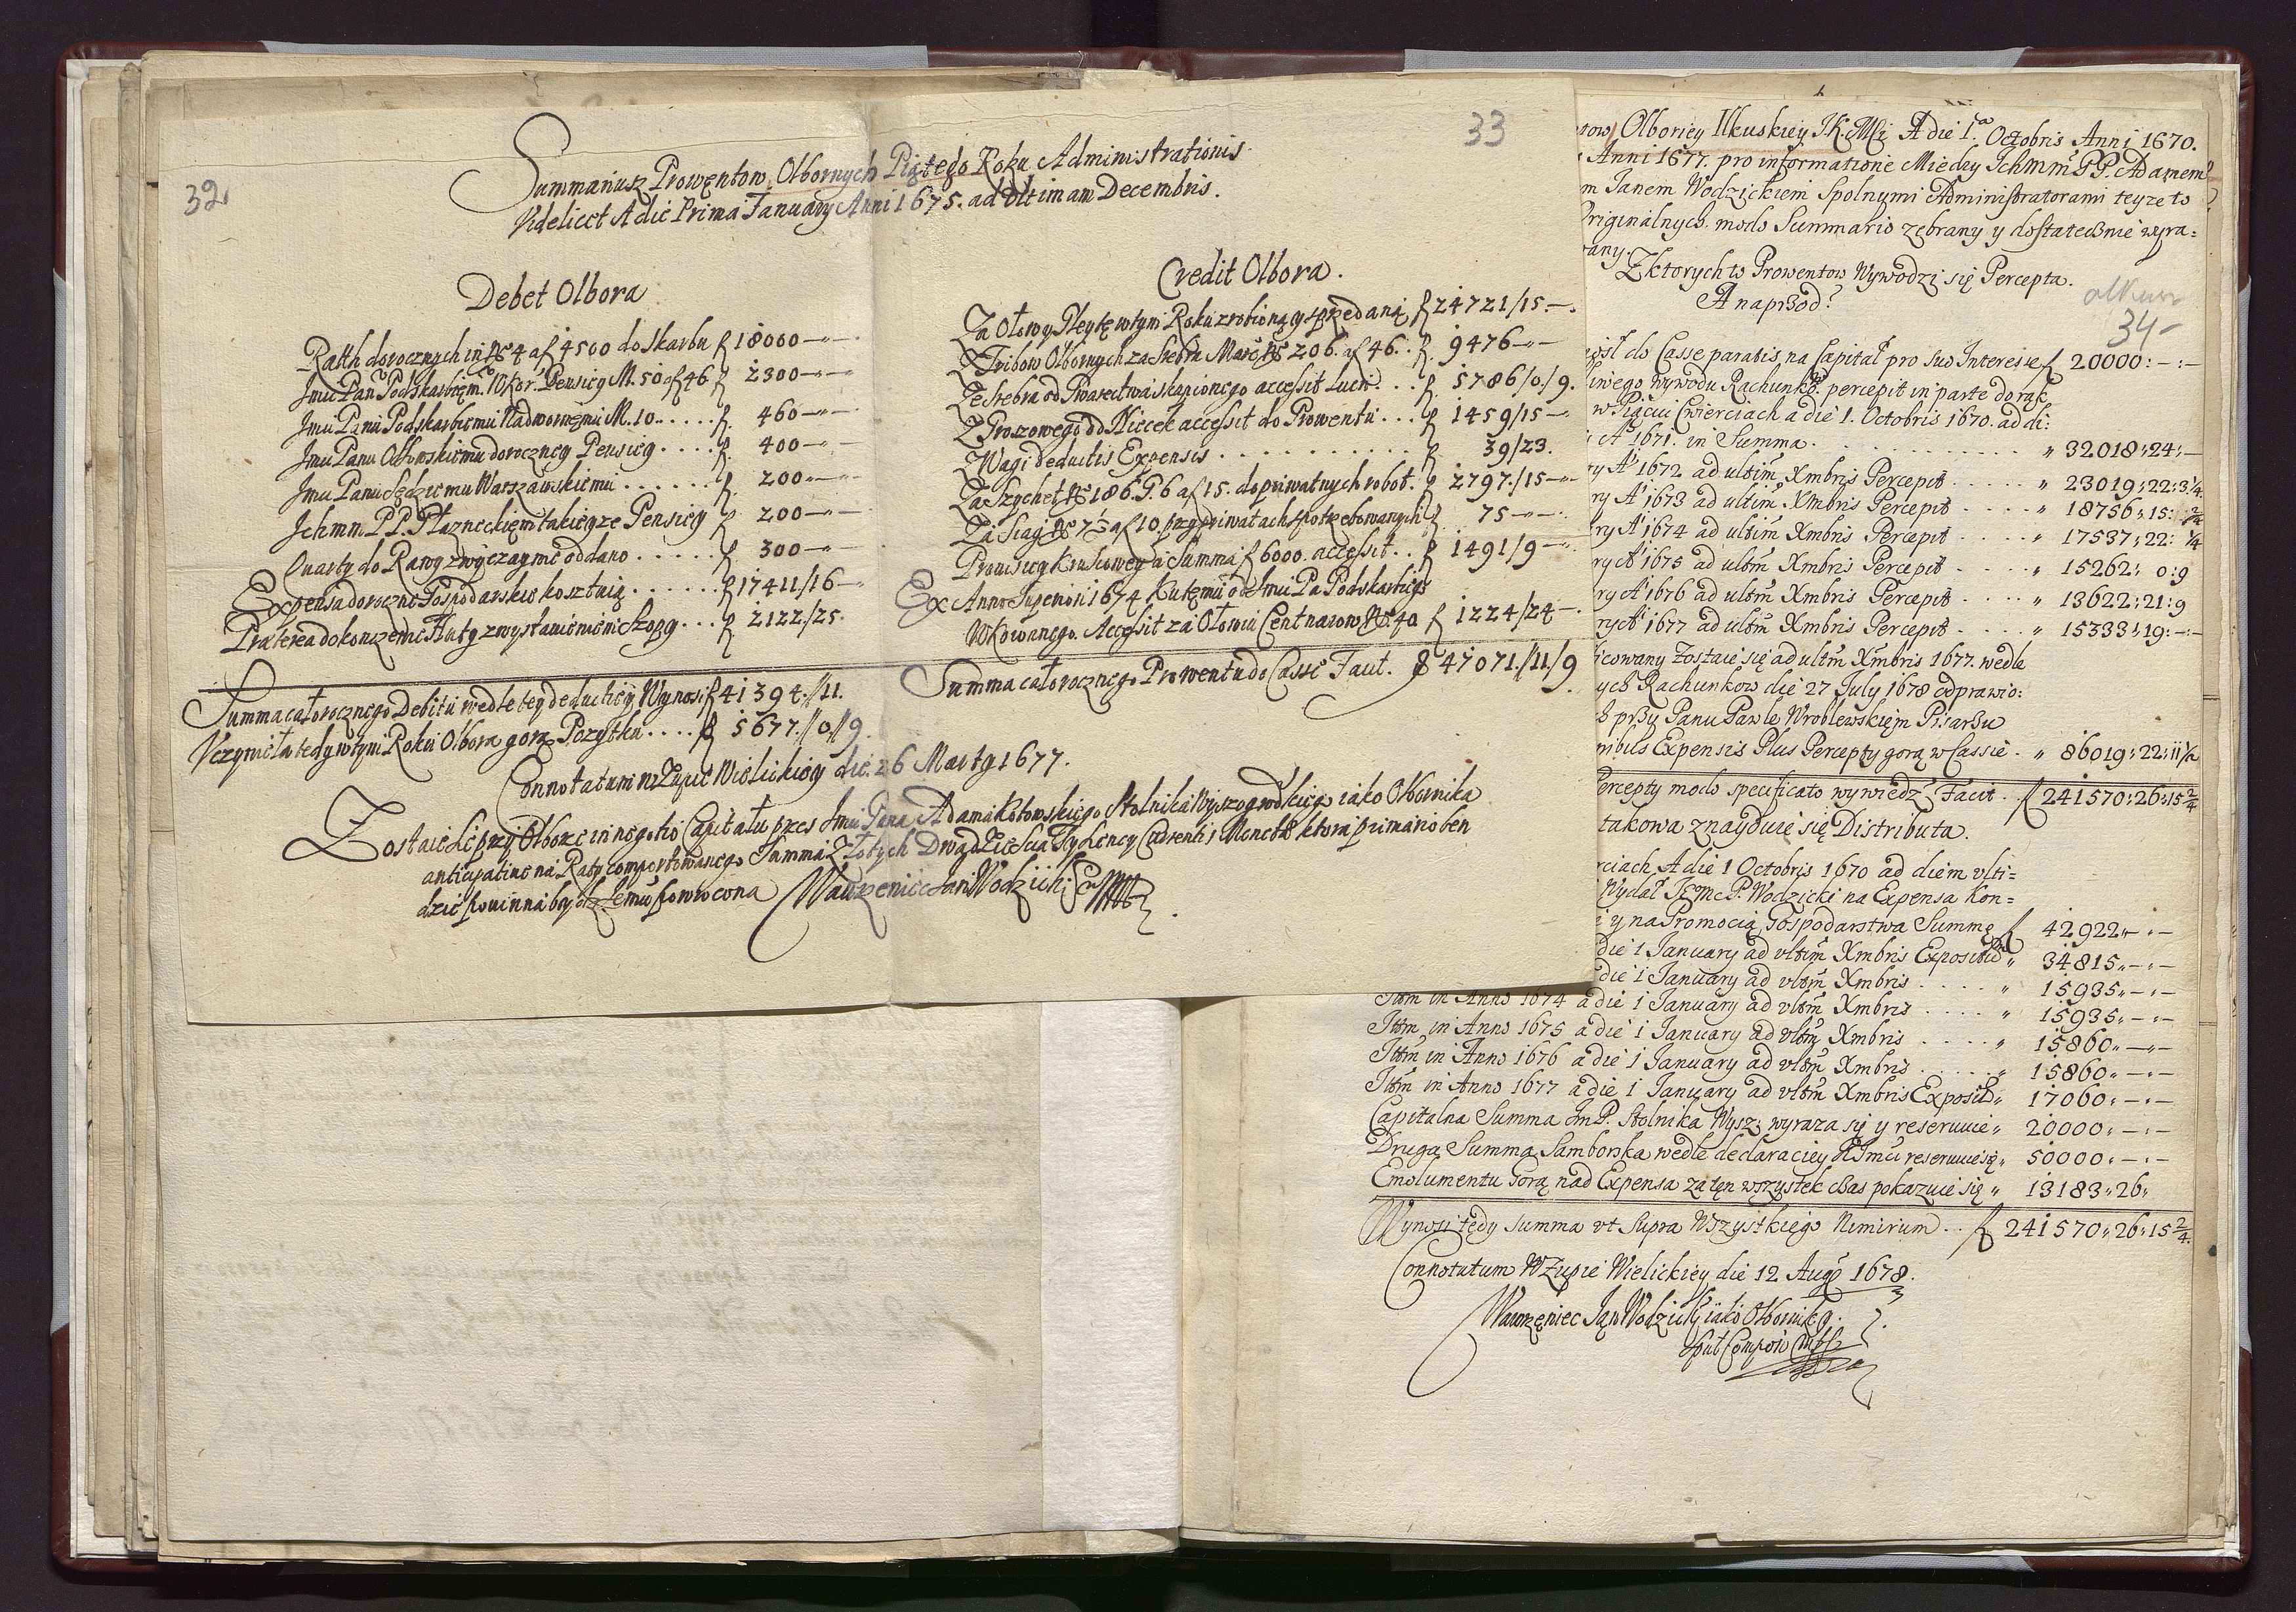 32
33
Summariusz Prowentow Olbornych Piątego Roku Administrationis
Videlicet A die Prima January Anni 1675. ad Vltimam Decembris.
Debet Olbora
Rath dorocznych in No 4 a f 4500 do Skarbu f 18000 — —
Jmu Panu Podskarbiemu WKor. Pensiey M. 50 a f 46 f 2300 — —
Jmu Panu Podskarbiemu Nadwornemu M. 10 . . . . . f. 460 — —
Jmu Panu doroczney Pensiey . . . . f. 400 — —
Jmu Panu Sędziemu Warszawskiemu . . . . . . f. 200 — —
Jchmm P.P. Płazneckiem takieyze Pensiey f 200 — —
Quarty do Rawy zwyczaymie oddano . . . . . . f 300 — —
Expensa doroczne Gospodarskie kosztuią . . . . . . f 17411/16 —
Praterea dokonczenie Huty zwystawieniem Szopy . . . f 2122/25.
Summa całorocznego Debitu wedle tey deductiy Wynosi f 41394.//11.
Vczyniła tedy wtym Roku Olbora gorą Pozytku . . . . f 5677.//0.//9.
Credit Olbora.
Za Ołowy Pleytę wtym Roku zrobioną y sprzedaną f 24721/15. —
Z Tribow Olbornych za Srebra Marc. No 206. a f 46. . f. 9476 — —
Ze Srebra od Kwarectwa skupionego accessit Lucri . . . f. 5786/0/9.
Z Groszowego od Niecek accessit do Prowentu . . . f 1459/15 —
Z Wagi deductis Expensis . . . . . . . . . . . f 39/23.
Za Szychet No 186. G. 6 a f 15. do priwatnych robot. f 2797./15 —
Za Sciag No 7½ a f 10. przy priwatach spotrzebowanych f 75 — —
Prouisiey Kruscowey a Summa f 6000. accessit . . f 1491/9 —
Ex Anno Superiori 1674 Kutemu od Jmu Pa Podskarbiego
WKowanego. Accessit za Ołowiu Centnarow No 40 f 1224/24 —
Summa całorocznego Prowentu do Casse Facit. f 47071.//11/9
Connotatum w Zupie Wielickiey die 26 Marty 1677.
Zostaie się przy Olborze in negotio Capitału przes Jmu Pana Adama Kotowskiego Stolnika Wyszogrodzkiego iako Olbornika
anticipatiue na Raty comportowanego Summa Złotych Dwadziescia Tysiency Currentis Monetæ ktora primario ben
dzie powinna bydz Jemu powrocona Wawrzeniec Jan Wodzicki
Olborney Ilkuskiey J.K.Mci A die 1.a Octobris Anni 1670.
Anni 1677. pro informatione Miedzy Jchmm PP. Adamem
m Janem Wodzickiem Spolnymi Administratorami teyze to
Originalnych modo Summario zebrany y dostatecznie wyra=
any. Z ktorych to Prowentow Wywodzi się Percepta.
A naprzod?
olkusz
34
do Casse paratis na Capitał pro suo Interesse f 20000:—:—
wywodu Rachunkow percepit in parte do rąk
w Piąciu Cwierciach a die 1. Octobris 1670. ad di:
Ao 1671. in Summa. . . . . . . . . . „ 32018:24:—
ry Ao 1672 ad ultim Xmbris Percepit . . . . . „ 23019:22:3¼
ry Ao 1673 ad ultim Xmbris Percepit . . . . . „ 18756:15:
ry Ao 1674 ad ultim Xmbris Percepit . . . . . „ 17537:22:¼
ry Ao 1675 ad ultm Xmbris Percepit . . . . . „ 15262:0:9
ry Ao 1676 ad ultm Xmbris Percepit . . . . . „ 13622:21:9
ry Ao 1677 ad ultm Xmbris Percepit . . . . . „ 15333:19:—:—
icowany Zostaie się ad ultm Xmbris 1677. wedle
ych Rachunkow die 27 July 1678 odprawio:
przy Panu Pawle Wroblewskiem Pisarzu
Expensis Plus Percepty gorą w Cassie . „ 86019:22:11½
Percepty modo specificato wywiedz Facit . f 241570:26:15 2/4
takowa znayduie się Distributa.
rciach A die 1 Octobris 1670 ad diem vlti=
Wydał JEmc P. Wodzicki na Expensa Kon=
y na Promocią Gospodarstwa Summę f 42922„—„—
die 1 January ad vltim Xmbris Expositu „ 34815„—„—
die 1 January ad vltm Xmbris . . . . . „ 15935„—„—
Ittm in Anno 1674 a die 1 January ad vltm Xmbris . . . . „ 15935„—„—
Ittm in Anno 1675 a die 1 January ad vltm Xmbris . . . . „ 15860„—„—
Ittm in Anno 1676 a die 1 January ad vltm Xmbris . . . . . „ 15860„—„—
Ittm in Anno 1677 a die 1 January ad vltm Xmbris Exposit „ 17060„—„—
Capitalna Summa JmP. Stolnika Wysz: wyraza się y reseruuie „ 20000„—„—
Druga Summa Samborska wedle declaraciey KJmci reseruuie się „ 50000„—„—
Emolumentu Gorą nad Expensa za ten wszystek czas pokazuie się „ 13183„26„
Wynosi tedy Summa vt Supra Wszystkiego Nimirum . . f 241570„26„15 2/4.
Connotatum W Zupie Wielickiey die 12 Augo 1678.
Wawrzeniec Jan Wodzicki iako Olbornik